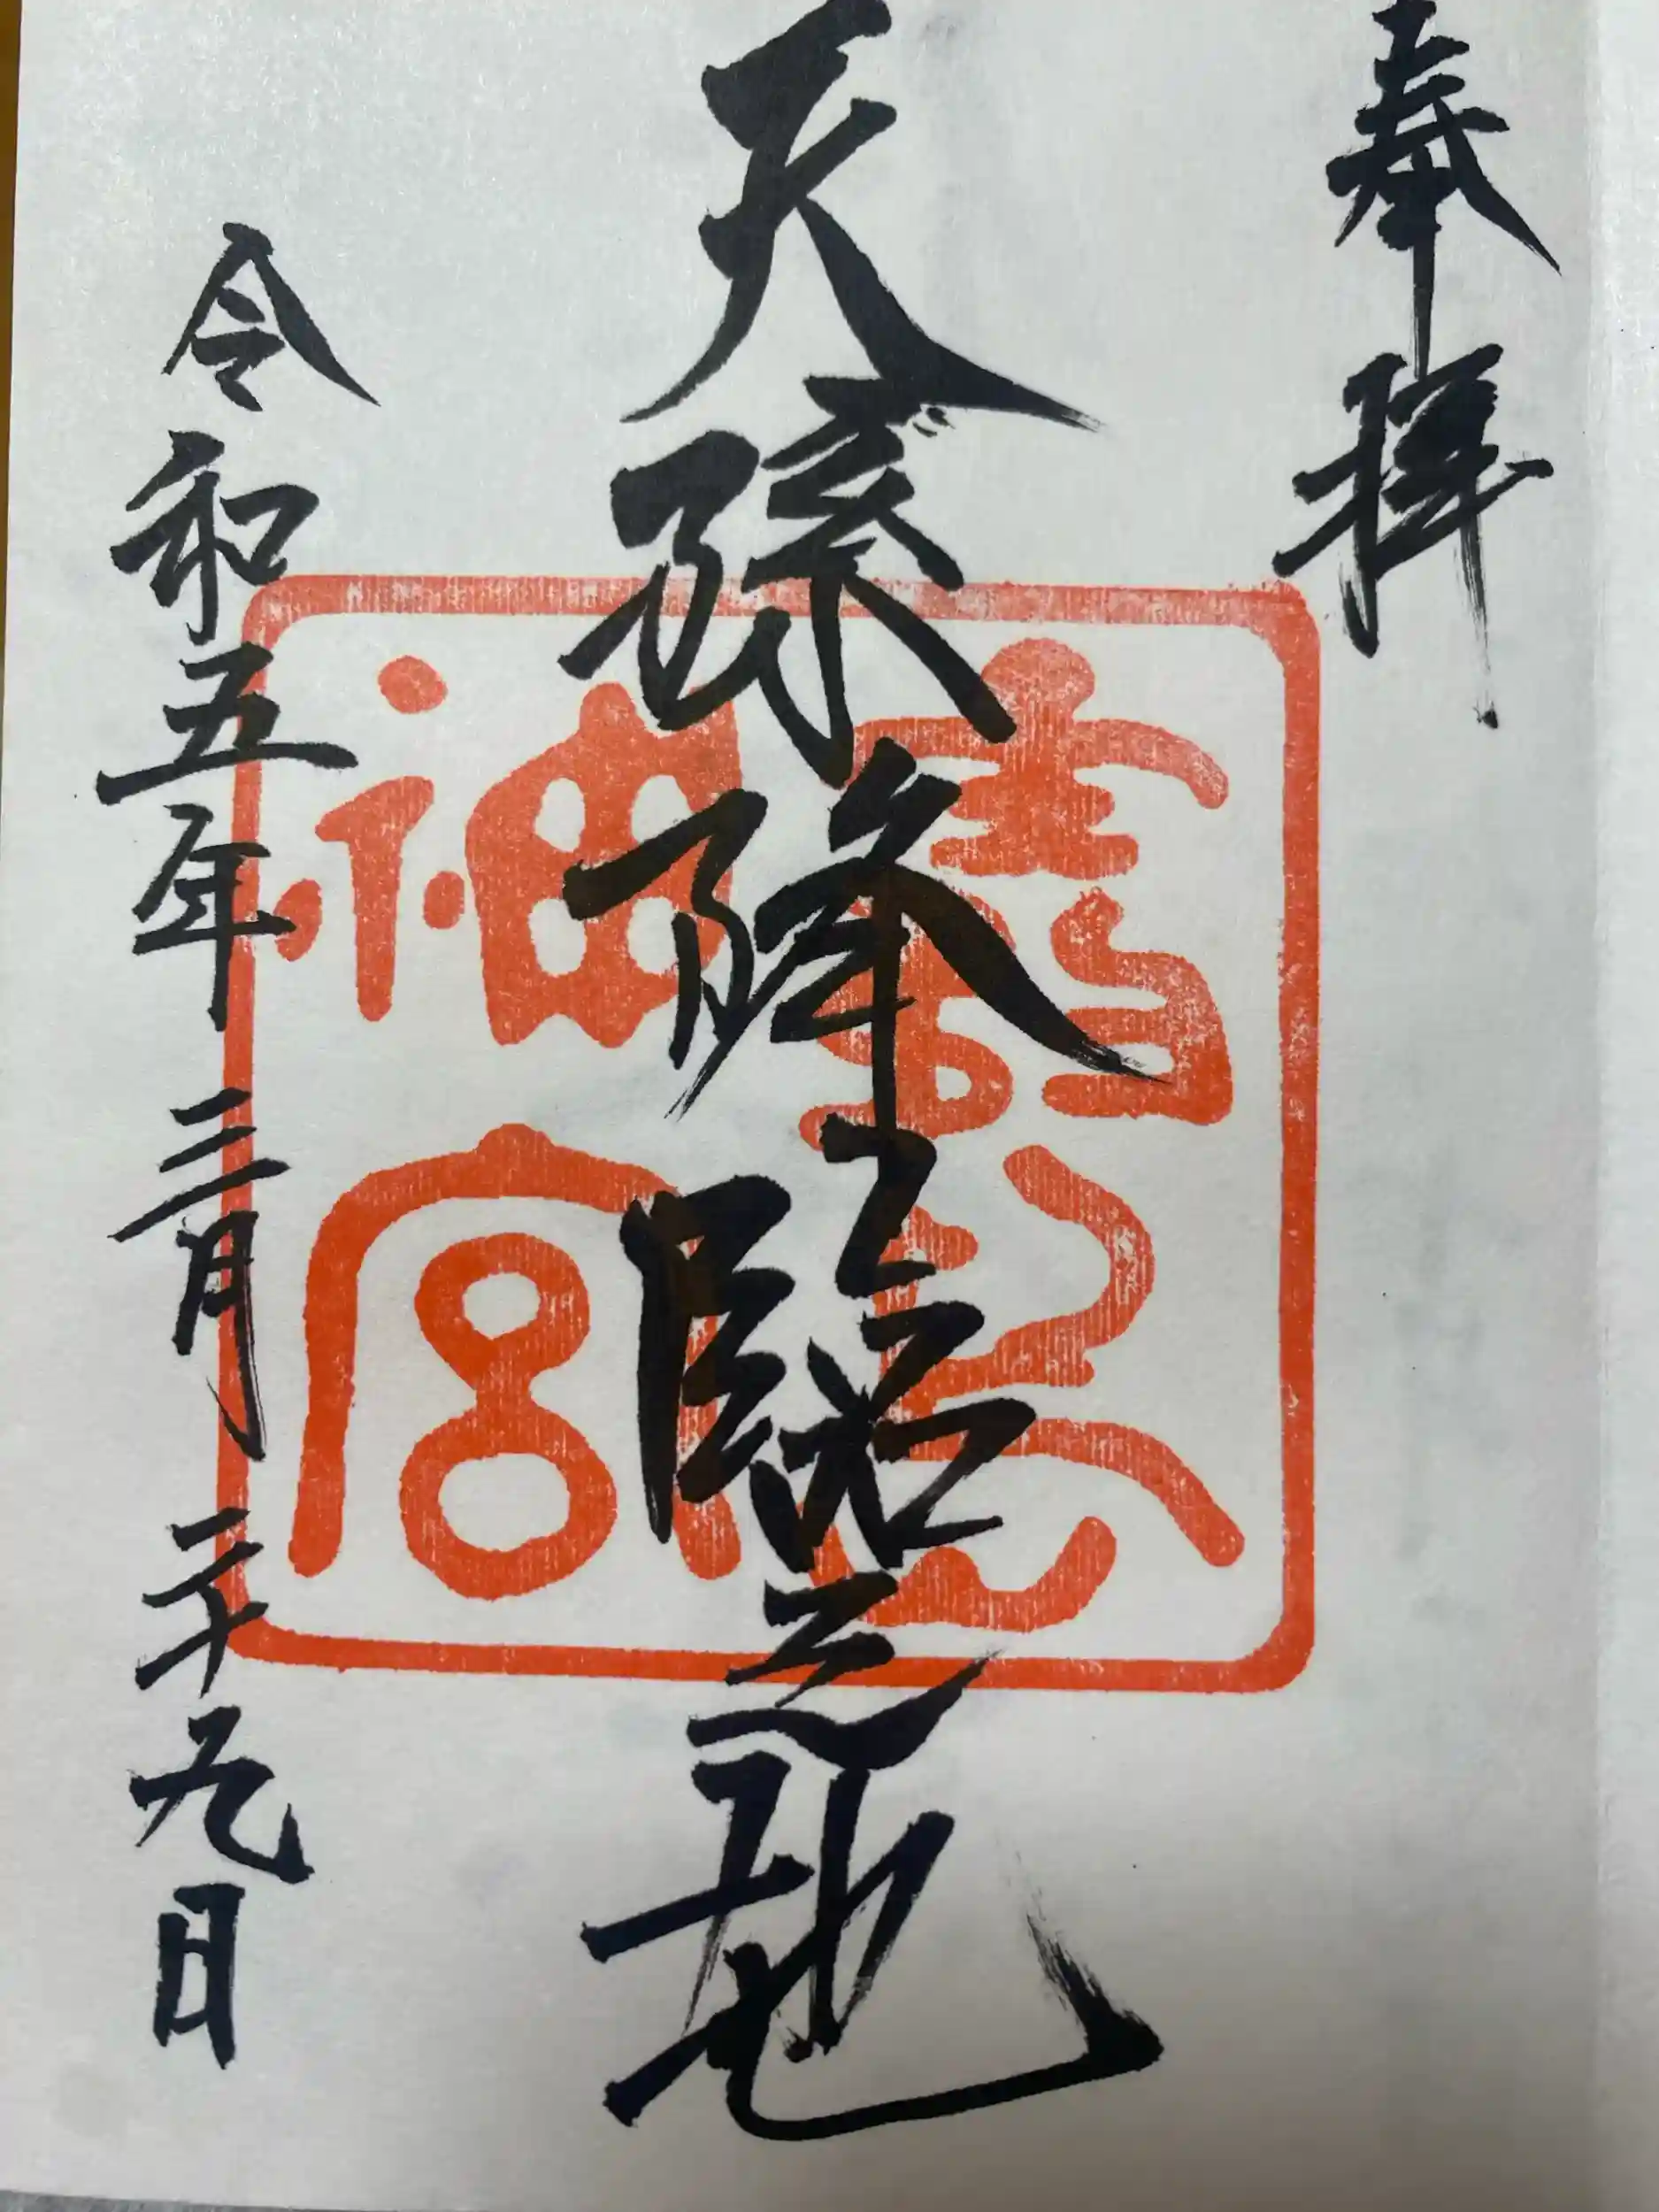 奉拝
天孫降臨之地
霧島神宮
令和五年三月二十九日